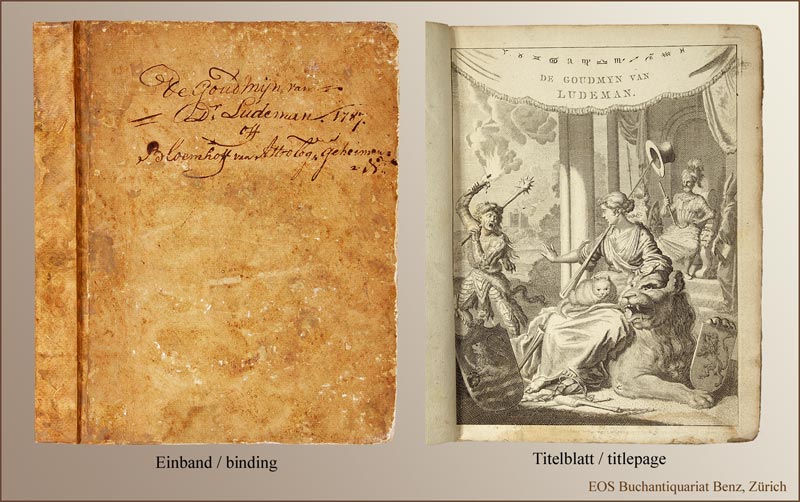 De Goudmijn van
Dr. Ludeman. 1787.
off
Bloemhoff van Astrolog. geheimen
DE GOUDMYN VAN
LUDEMAN.
Einband / binding
Titelblatt / titlepage
EOS Buchantiquariat Benz, Zürich